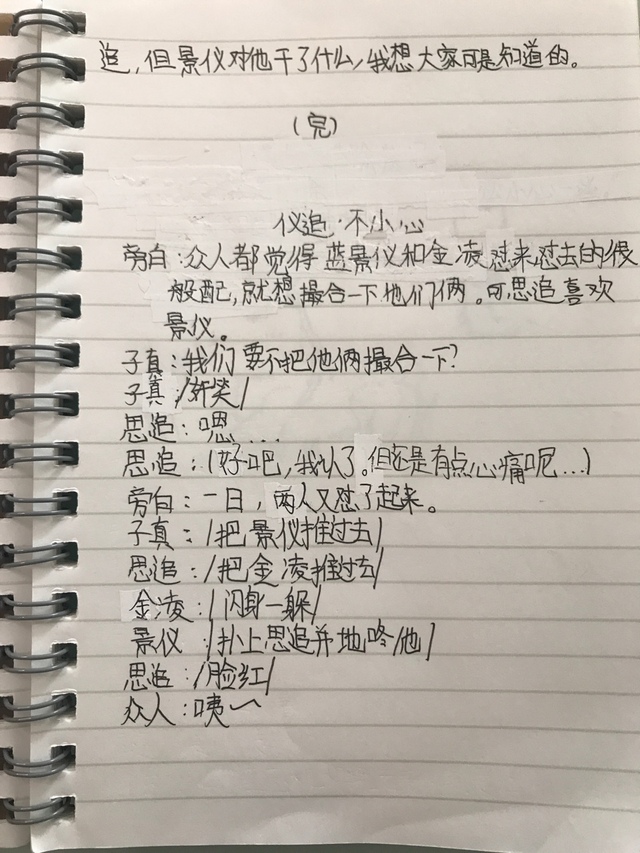 追,但景仪对他干了什么,我想大家可是知道的。
(完)
仪追·不小心
旁白:众人都觉得蓝景仪和金凌怼来怼去的很
般配,就想撮合一下他们俩。可思追喜欢
景仪。
子真:我们要不把他俩撮合一下?
子真:/奸笑/
思追:嗯...
思追:(好吧,我认了。但还是有点心痛呢...)
旁白:一日,两人又怼了起来。
子真:/把景仪推过去/
思追:/把金凌推过去/
金凌:/闪身一躲/
景仪:/扑上思追并地咚他/
思追:/脸红/
众人:咦~